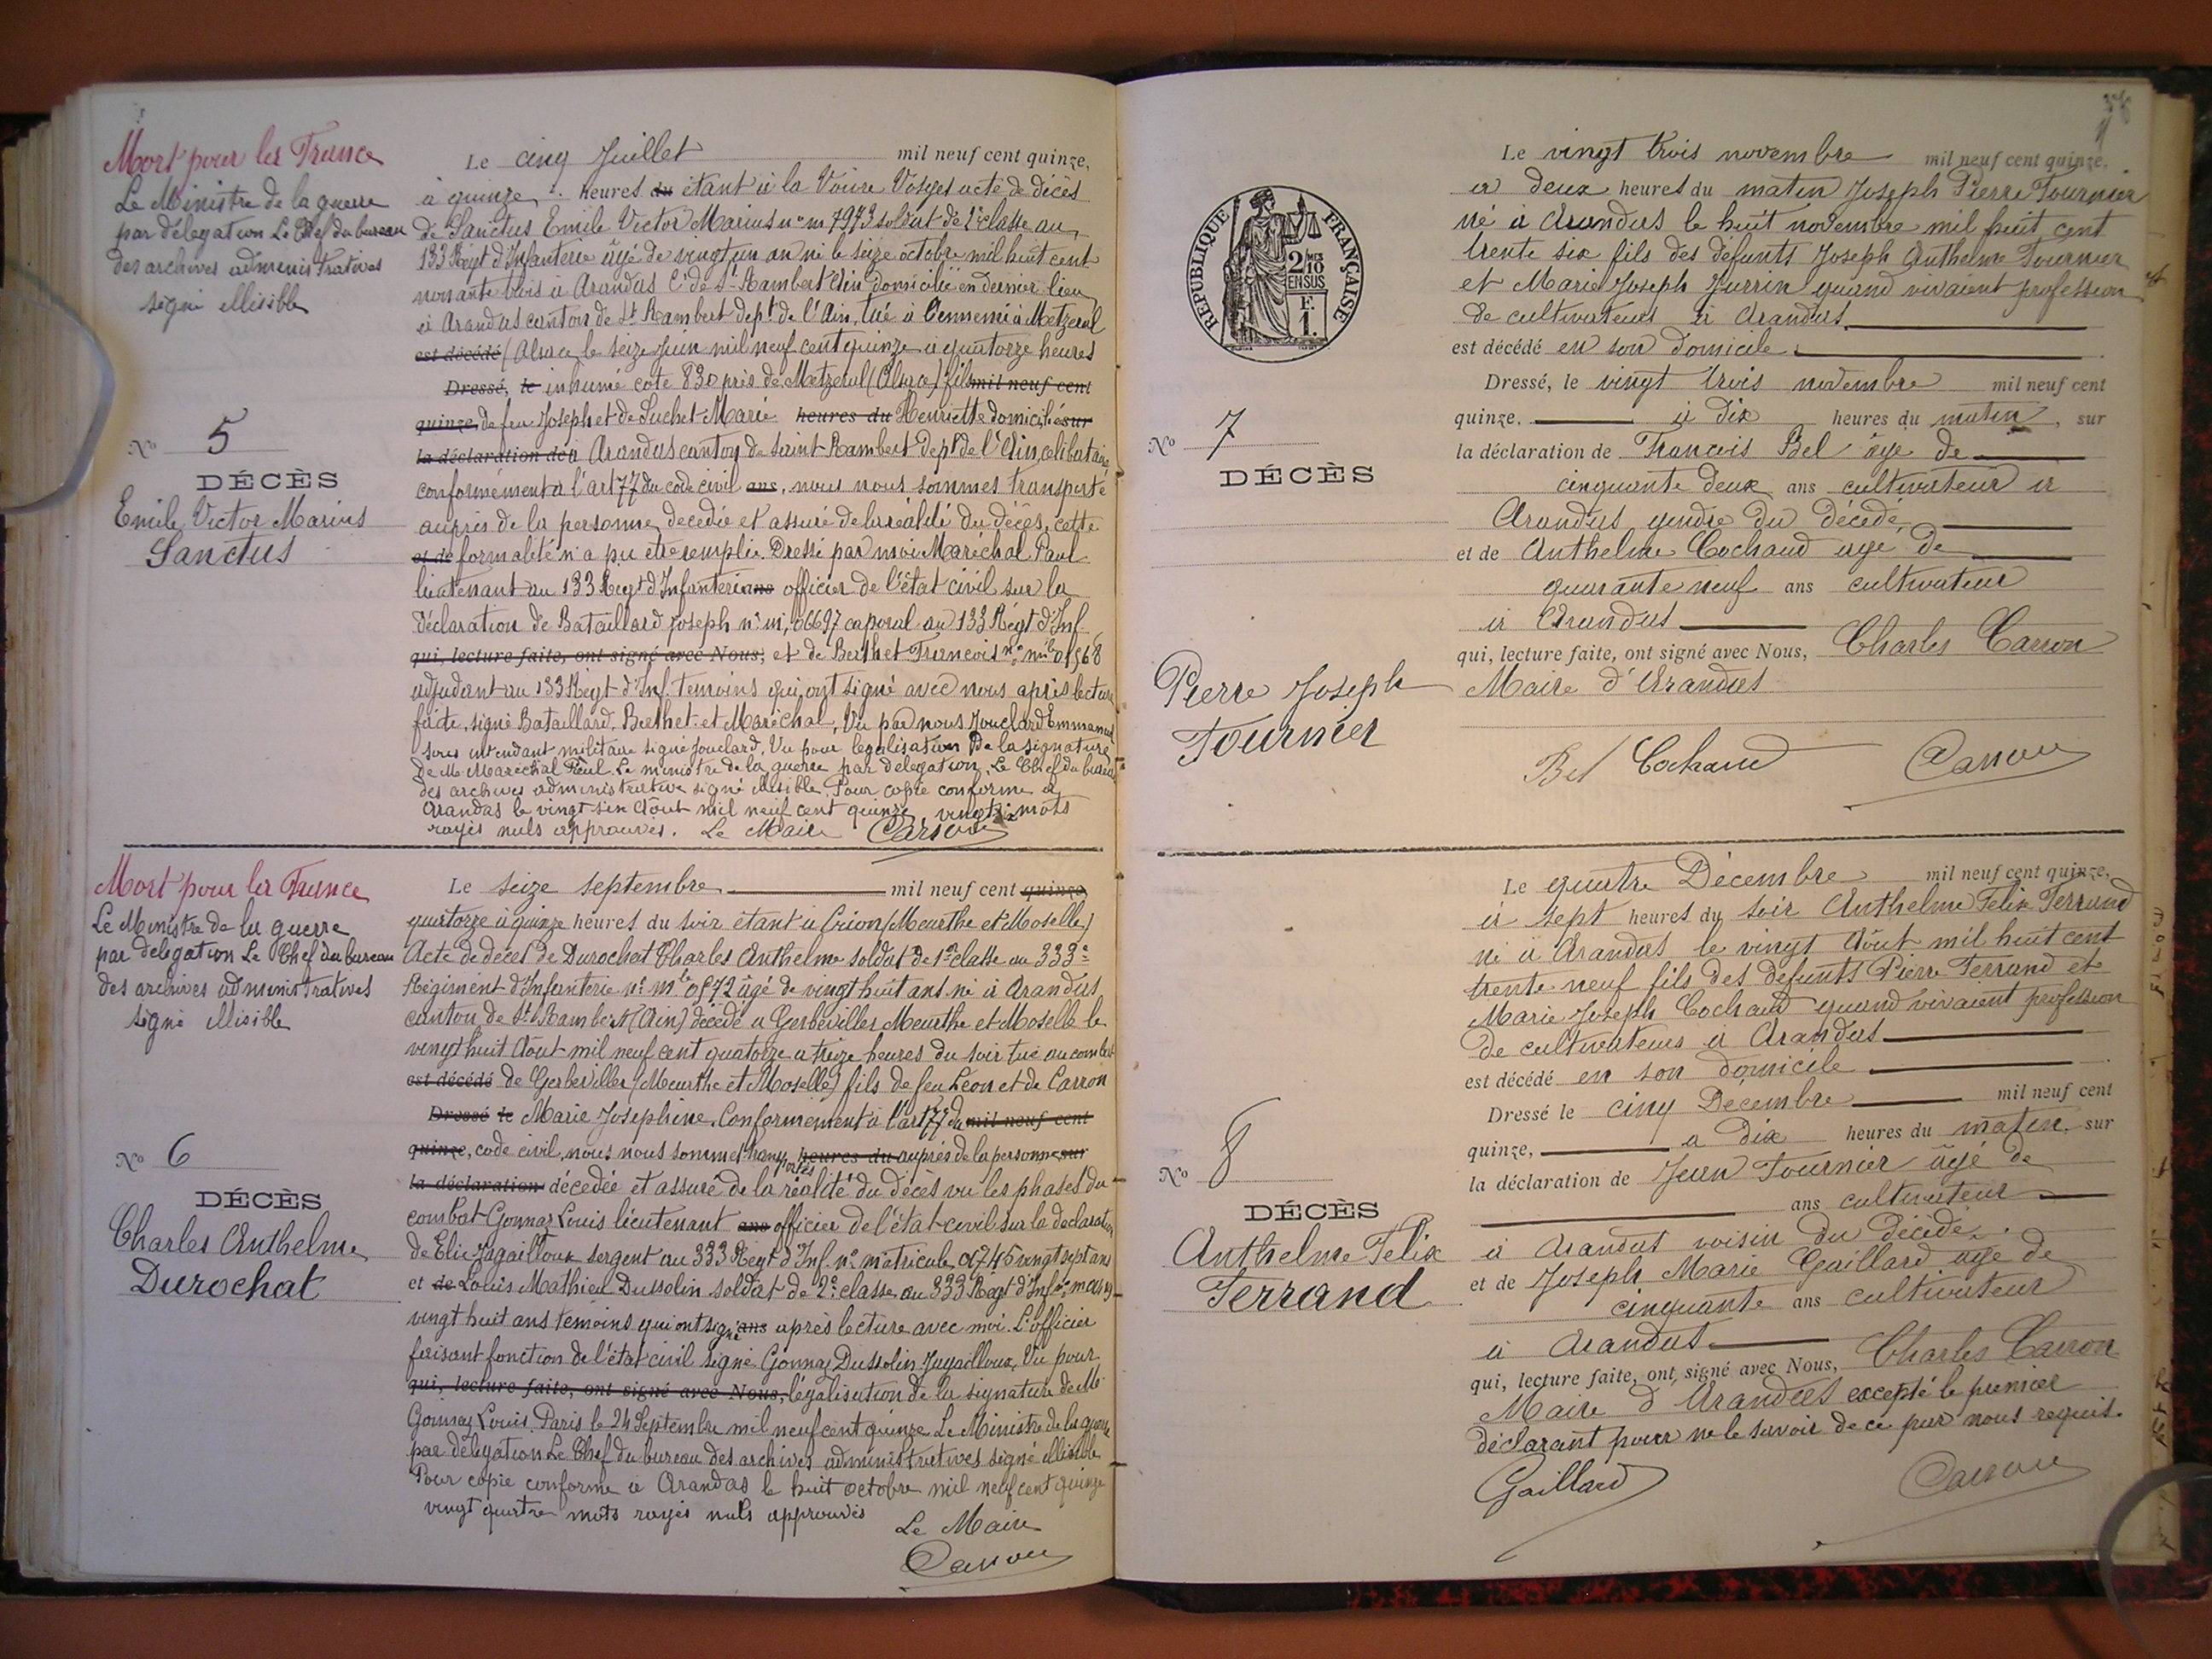 Mort pour la France
Le Ministre de la guerre
par délégation Le Chef du bureau
des archives administratives
signé illisible
No 5
DÉCÈS
Emile Victor Marius
Sanctus
Le cinq Juillet mil neuf cent quinze,
à quinze heures du étant à la Voivre Vosges acte de décès
de Sanctus Emile Victor Marius no m 7973 soldat de 1e classe au
133 Regt d'Infanterie âgé de vingt un an né le seize octobre mil huit cent
nonante trois à Arandas Con de St Rambert Ain domicilié en dernier lieu
à Arandas canton de St Rambert Dept de l'Ain, tué à l'ennemi à Metzeral
est décédé (Alsace le seize Juin mil neuf cent quinze à quatorze heures
Dressé, le inhumé cote 830 près de Metzeral (Alsace) fils mil neuf cent
quinze, de feu Joseph et de Suchet Marie heures du Henriette domicilié sur
la déclaration de à Arandas canton de Saint-Rambert Dept de l'Ain, célibataire
conformément à l'art 77 du code civil ans, nous nous sommes transporté
auprès de la personne décédée et assuré de la réalité du décès, cette
et de formalité n'a pu être remplie. Dressé par moi Maréchal Paul
lieutenant au 133 Regt d'Infanterie ans officier de l'état civil sur la
déclaration de Bataillard Joseph no m, 06697 caporal au 133 Régt d'Inf
qui, lecture faite, ont signé avec Nous, et de Berthet Francois no mle 01568
adjudant au 133 Regt d'Inf. temoins qui, ont signé avec nous après lecture
faite, signé Bataillard, Berthet et Maréchal, Vu par nous Jouclard Emmanuel
sous intendant militaire signé Jouclard, Vu pour legalisation De la signature
de Mr Maréchal Paul. Le ministre de la guerre par délégation, Le Chef du bureau
des archives administrative signé illisible, Pour copie conforme à
Arandas le vingt-six Août mil neuf cent quinze, vingt mots
rayés nuls approuvés. Le Maire Carron
Mort pour la France
Le Ministre de la guerre
par délégation Le Chef du bureau
des archives administratives
signé illisible
No 6
DÉCÈS
Charles Anthelme
Durochat
Le seize septembre mil neuf cent quinze
quatorze à quinze heures du soir étant à Crion (Meurthe et Moselle)
Acte de décès de Durochat Charles Anthelme soldat de 1re classe au 333e
Régiment d'Infanterie no mle 0572 âgé de vingt huit ans né à Arandas
canton de St Rambert (Ain) décédé à Gerbeviller Meurthe et Moselle le
vingt huit Août mil neuf cent quatorze à treize heures du soir tué au combat
est décédé de Gerbeviller (Meurthe et Moselle) fils de feu Léon et de Carron
Dressé le Marie Josephine. Conformément à l'art 77 du mil neuf cent
quinze, code civil, nous nous sommes transportés heures du auprès de la personne sur
la déclaration décédée et assuré de la réalité du décès vu les phases du
combat Gonnaz Louis lieutenant ans officier de l'état-civil sur la déclaration
de Elie Jagailloux sergent au 333 Regt d'Inf. no matricule 04745 vingt sept ans
et de Louis Mathieu Dussolin soldat de 2e classe au 333 Regt d'Inf
vingt huit ans témoins qui ont signé ans après lecture avec moi L'officier
faisant fonction de l'état civil signé Gonnaz Dussolin Jagailloux, Vu pour
qui, lecture faite, ont signé avec Nous, légalisation de la signature de Mr
Gonnaz Louis. Paris le 24 Septembre mil neuf cent quinze Le Ministre de la guerre
par délégation Le Chef du bureau des archives administratives signé illisible
Pour copie conforme à Arandas le huit octobre mil neuf cent quinze
vingt quatre mots rayés nuls approuvés
Le Maire
Carron
REPUBLIQUE FRANÇAISE
2/10 EN SUS
F. 1.
No 7
DÉCÈS
Pierre Joseph
Fournier
Le vingt trois novembre mil neuf cent quinze,
à deux heures du matin Joseph Pierre Fournier
né à Arandas le huit novembre mil huit cent
trente six fils des défunts Joseph Anthelme Fournier
et Marie Joseph Jurrin quand vivaient profession
de cultivateurs à Arandas
est décédé en son domicile
Dressé, le vingt trois novembre mil neuf cent
quinze, à dix heures du matin, sur
la déclaration de Francois Bel âgé de
cinquante deux ans cultivateur à
Arandas gendre du décédé,
et de Anthelme Cochaud âgé de
quarante neuf ans cultivateur
à Arandas
qui, lecture faite, ont signé avec Nous, Charles Carron
Maire d'Arandas
Bel Cochaud Carron
No 8
DÉCÈS
Anthelme Felix
Ferrand
Le quatre Décembre mil neuf cent quinze,
à sept heures du soir Anthelme Felix Ferrand
né à Arandas le vingt Août mil huit cent
trente neuf fils des defunts Pierre Ferrand et
Marie Joseph Cochaud quand vivaient profession
de cultivateurs à Arandas
est décédé en son domicile
Dressé le cinq Decembre mil neuf cent
quinze, à dix heures du matin, sur
la déclaration de Jean Fournier âgé de
ans cultivateur
à Arandas voisin du décédé,
et de Joseph Marie Gaillard âgé de
cinquante ans cultivateur
à Arandas
qui, lecture faite, ont signé avec Nous, Charles Carron
Maire d'Arandas excepté le premier
déclarant pour ne le savoir de ce par nous requis.
Gaillard Carron